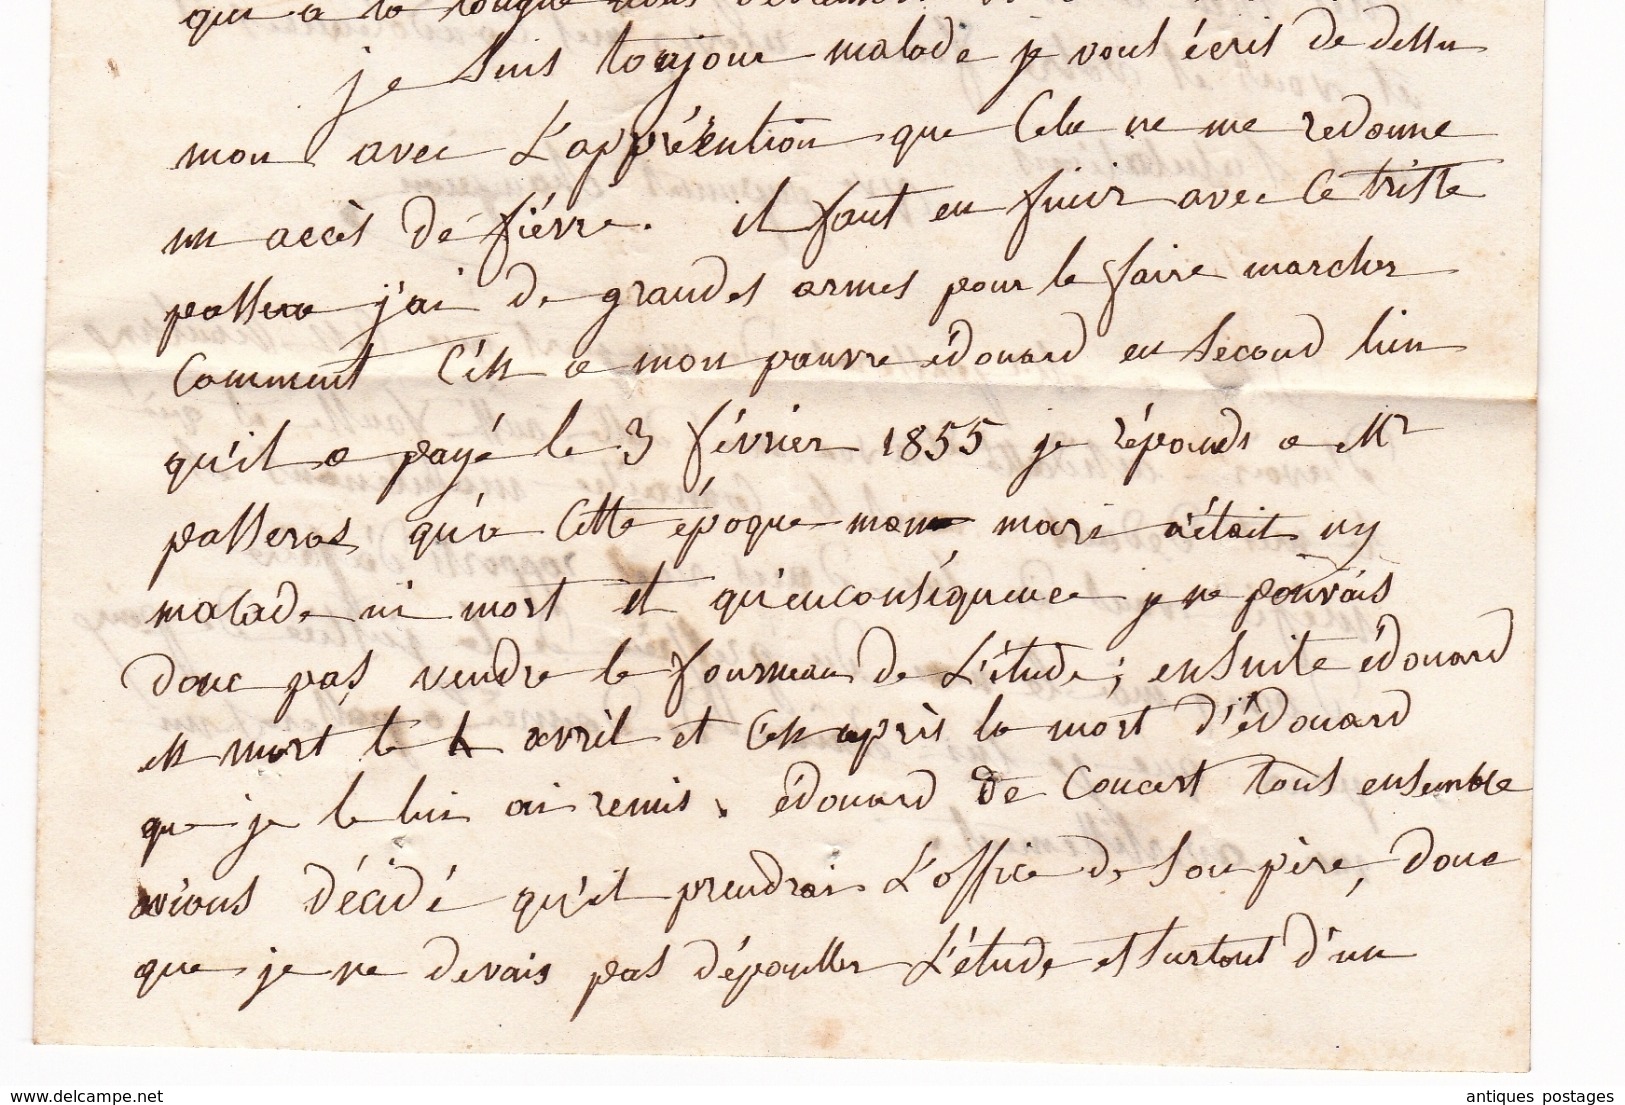 qui a la longue nous
je suis toujour malade je vous écris de dessu
mon avec L'appréention que Cela ne me redonne
un accès dé fiévre. il faut en finir avec Ce triste
j'ai de grandes armes pour le faire marcher
Comment C'est a mon pauvre édouard en second lieu
qu'il a payé le 3 février 1855 je réponds a Mr
passeras qu'a Cette époque mon mari n'était ny
malade ni mort et qu'enconséquence je ne pouvais
donc pas vendre le fourneau de L'étude; ensuite édouard
est mort le 4 avril et C'est après la mort d'édouard
que je le lui ai remis. édouard De Concert tous ensemble
avions décidé qu'il prendrai L'office de Son père, donc
que je ne devais pas dépouller L'étude et surtout d'un
antiques postages
www.delcampe.net